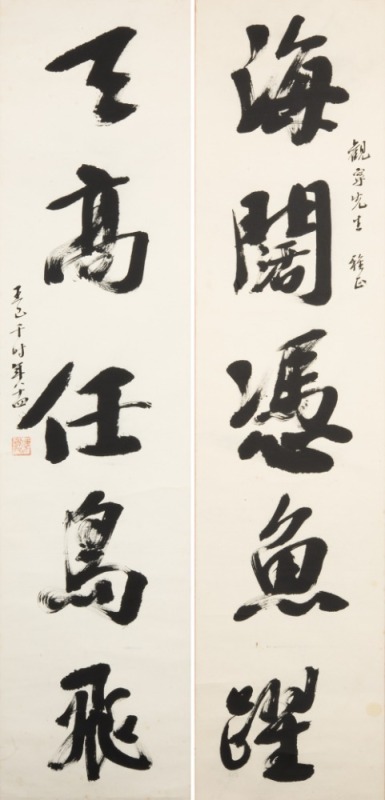 觀寧先生 雅正
海闊憑魚躍
天高任鳥飛
王己千時年八十四